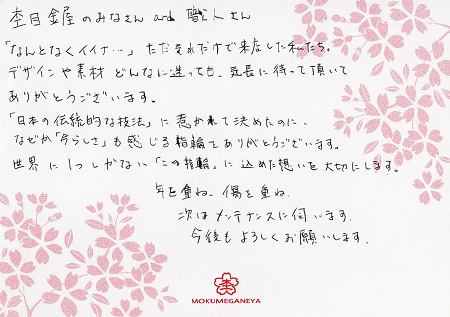 杢目金屋のみなさん and 職人さん
「なんとなくイイナ…」ただそれだけで来店した私たち。
デザインや素材 どんなに迷っても、気長に待って頂いて
ありがとうございます。
「日本の伝統的な技法」に惹かれて決めたのに、
なぜか「今らしさ」も感じる指輪をありがとうございます。
世界に1つしかない「この指輪」に込めた想いを大切にします。
年を重ね、傷を重ね、
次はメンテナンスに伺います。
今後もよろしくお願いします。
MOKUMEGANEYA